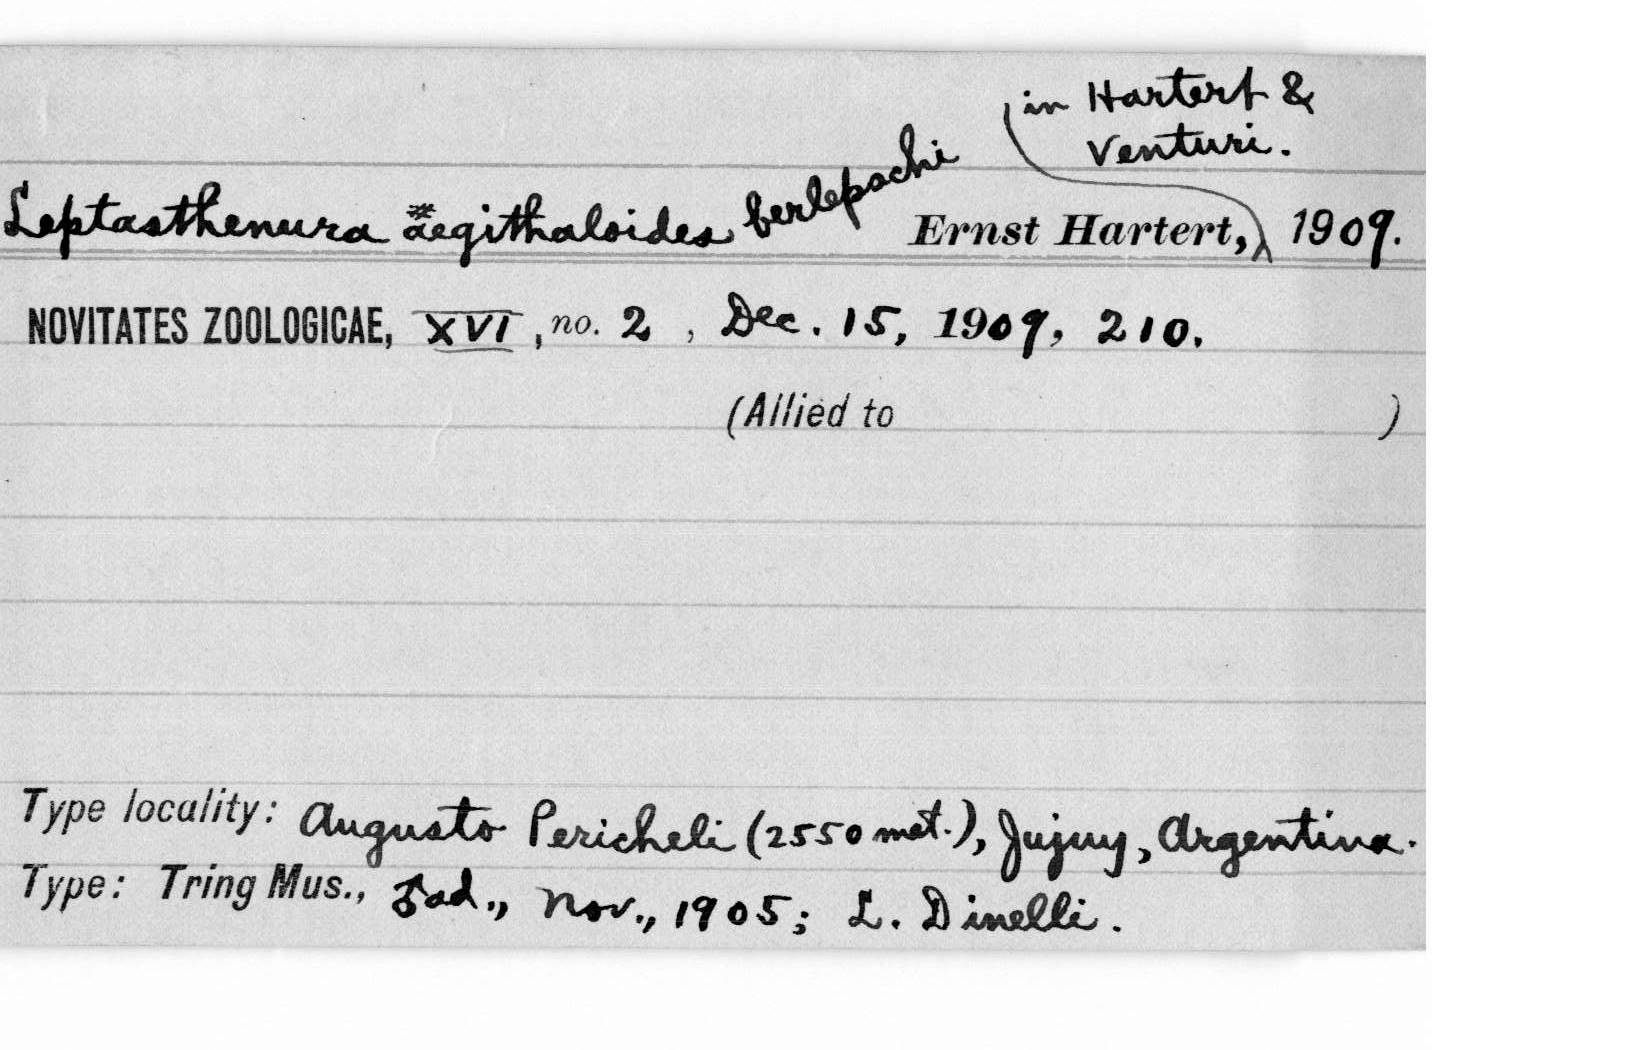 in Hartert &
Venturi.
Leptasthenura aegithaloides berlepschi Ernst Hartert, 1909.
NOVITATES ZOOLOGICAE, XVI, no. 2, Dec. 15, 1909, 210.
(Allied to )
Type locality: Augusto Pericheli (2550 met.), Jujuy, Argentina.
Type: Tring Mus., ♂ ad., Nov., 1905; L. Dinelli.